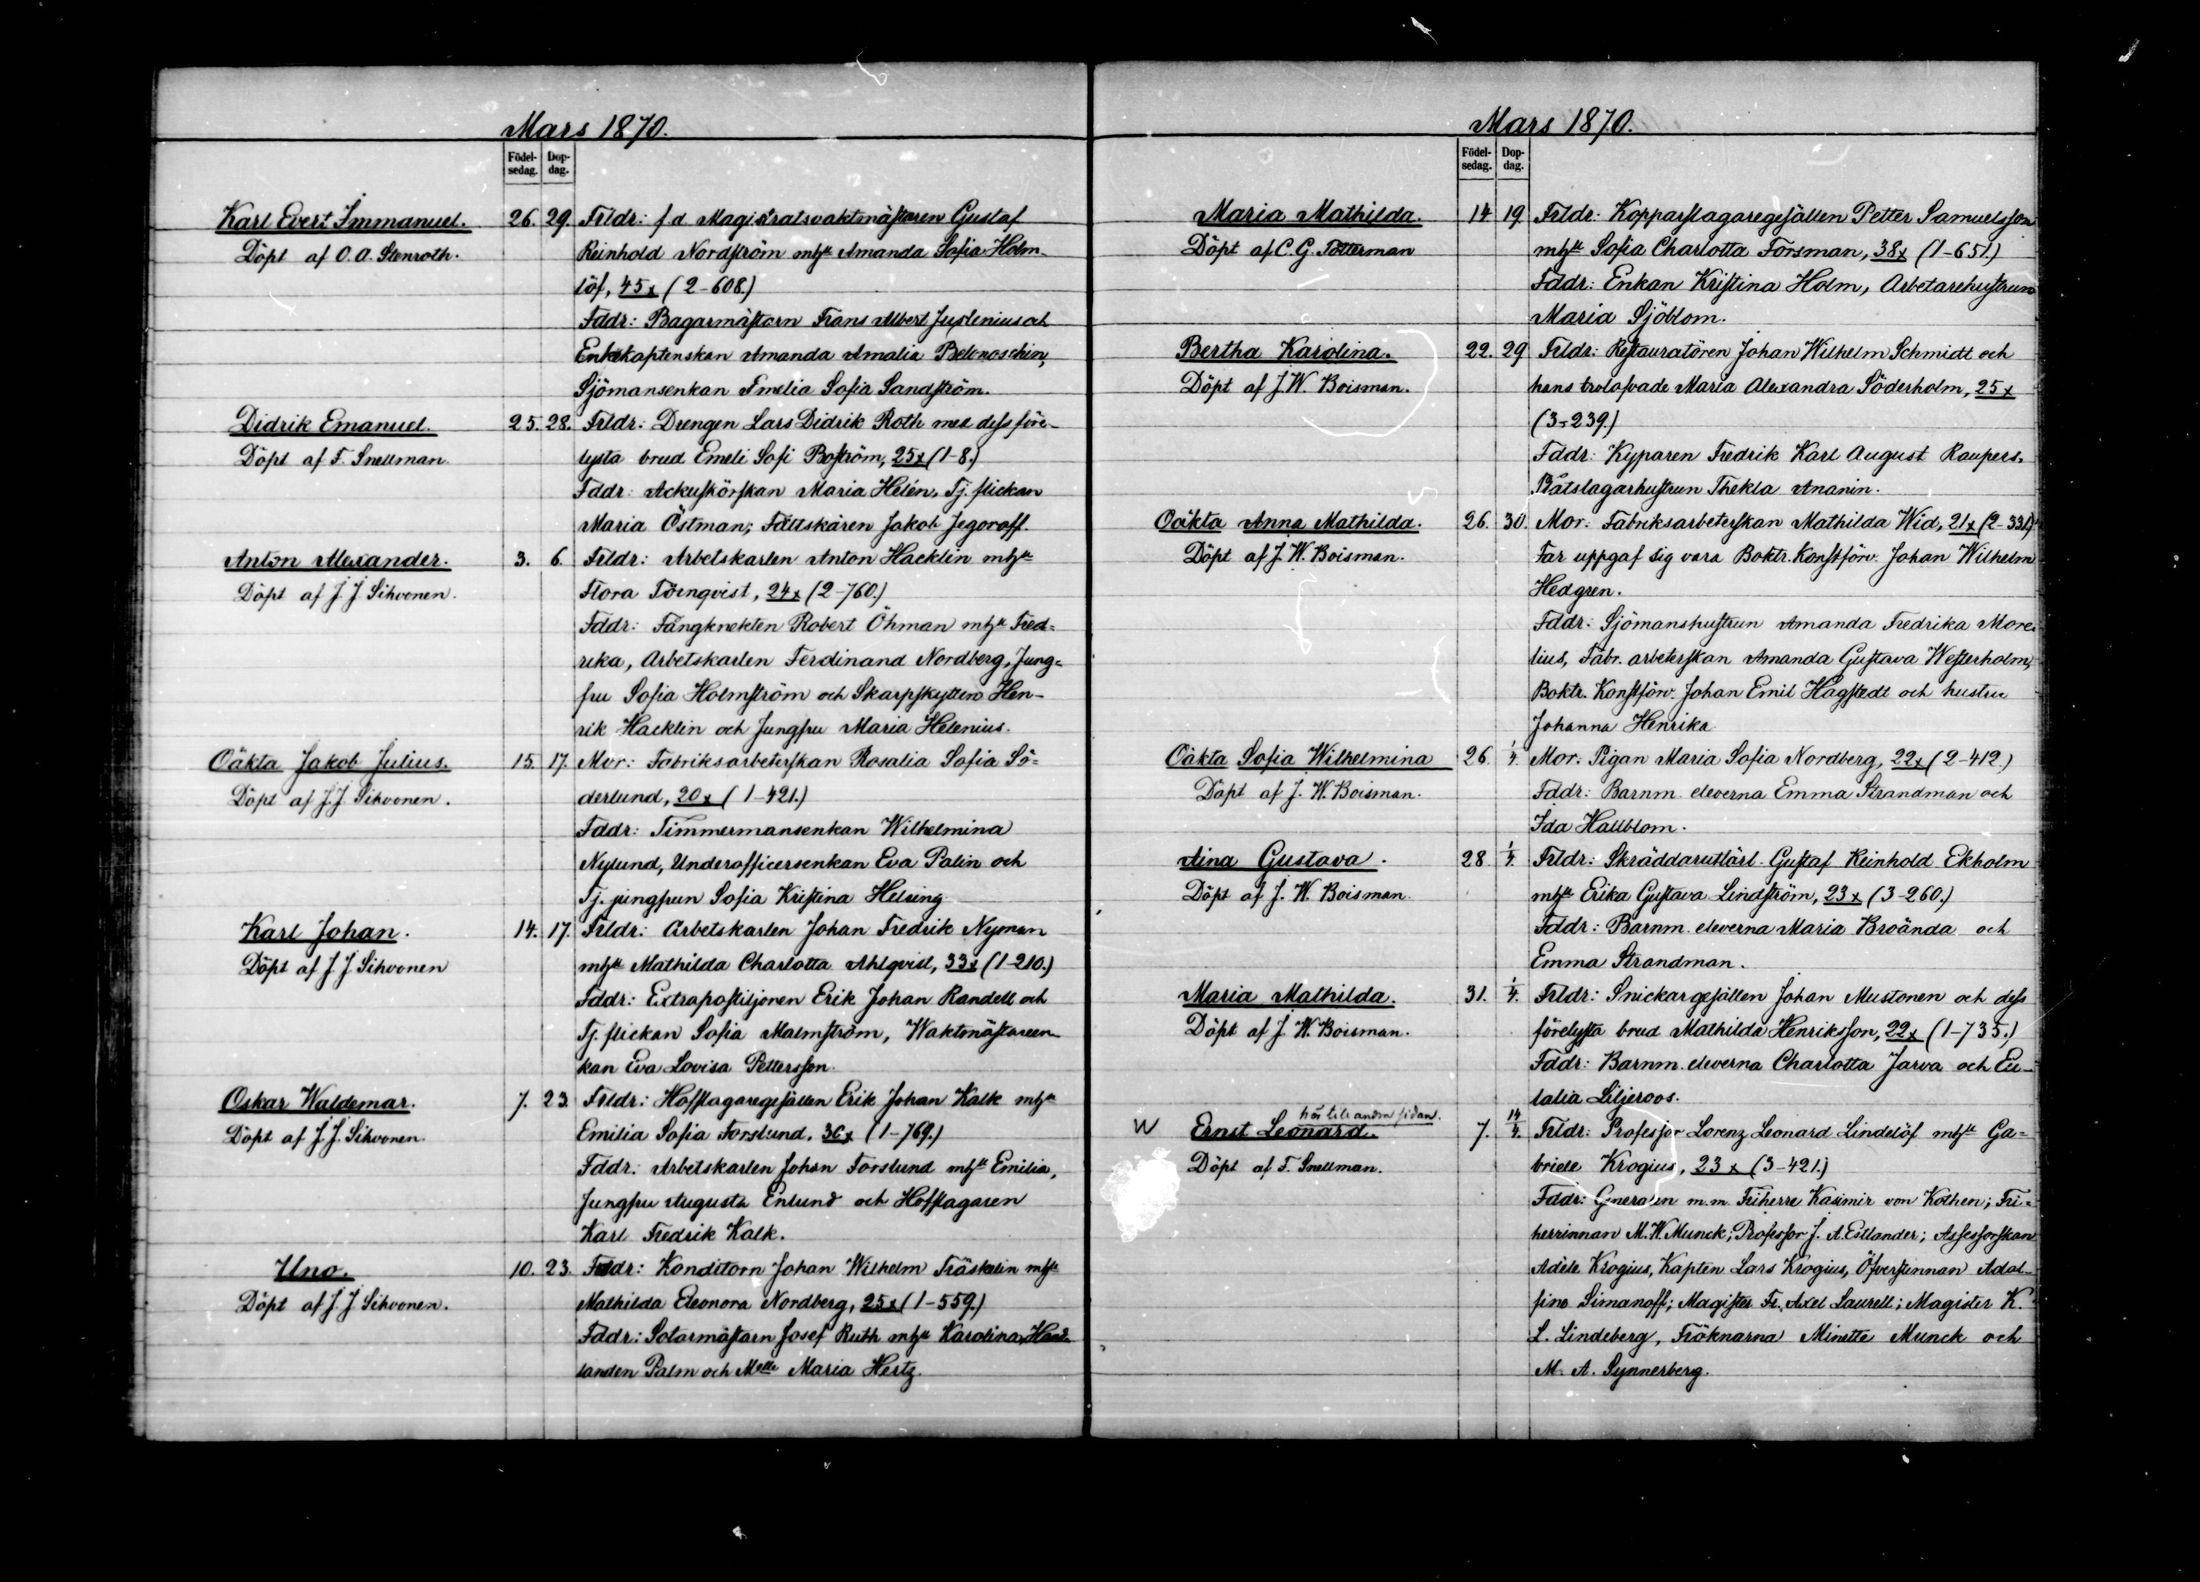 Mars 1870.
Födel-
sedag.
Dop-
dag.
Karl Evert Immanuel.
Döpt af O. A. Stenroth.
26. 29.
Frldr: f d Magistratsvaktmästaren Gustaf
Reinhold Nordström mhu Amanda Sofia Holm-
löf, 45x (2-608.)
Fddr: Bagarmästarn Frans Albert Juslenius och
Enkekaptenskan Amanda Amalia Belonoschin,
Sjömansenkan Emelia Sofia Sandström.
Didrik Emanuel.
Döpt af F. Snellman.
25. 28.
Frldr: Drengen Lars Didrik Roth med dess före-
lysta brud Emeli Sofi Boström, 25x (1-8.)
Fddr: Ackuskörskan Maria Helén, Tj. flickan
Maria Östman; Fältskären Jakob Jegoroff.
Anton Alexander.
Döpt af J. J Sihvonen.
3. 6.
Frldr: Arbetskarlen Anton Hacklin mhu
Flora Törnqvist, 24x (2-760.)
Fddr: Fångknekten Robert Öhman mhu Fred-
rika, Arbetskarlen Ferdinand Nordberg, Jung-
fru Sofia Holmström och Skarpskytten Hen-
rik Hacklin och Jungfru Maria Helenius.
Oäkta Jakob Julius.
Döpt af J. J Sihvonen.
15. 17.
Mor: Fabriksarbeterskan Rosalia Sofia Sö-
derlund, 20x (1-421.)
Fddr: Timmermansenkan Wilhelmina
Nylund, Underofficersenkan Eva Palin och
Tj. jungfrun Sofia Kristina Helsing
Karl Johan.
Döpt af J J Sihvonen
14. 17.
Frldr: Arbetskarlen Johan Fredrik Nyman
mhu Mathilda Charlotta Ahlqvist, 33x (1-210.)
Fddr: Extrapostiljonen Erik Johan Randell och
Tj. flickan Sofia Malmström, Waktmästareen-
kan Eva Lovisa Pettersson.
Oskar Waldemar.
Döpt af J. J. Sihvonen.
7. 23.
Frldr: Hofslagaregesällen Erik Johan Kalk mhu
Emilia Sofia Forslund, 36x (1-769.)
Fddr: Arbetskarlen Johan Forslund mhu Emilia,
Jungfru Augusta Enlund och Hofslagaren
Karl Fredrik Kalk.
Uno.
Döpt af J. J Sihvonen.
10. 23.
Frldr: Konditorn Johan Wilhelm Träskelin mhu
Mathilda Eleonora Nordberg, 25x (1-559.)
Fddr: Sotarmästarn Josef Ruth mhu Karolina, Hand-
landen Palm och Melle Maria Hertz.
Mars 1870.
Födel-
sedag.
Dop-
dag.
Maria Mathilda.
Döpt af C. G. Totterman
14 19.
Frldr: Kopparslagaregesällen Petter Samuelsson
mhu Sofia Charlotta Forsman, 38x (1-651.)
Fddr: Enkan Kristina Holm, Arbetarehustrun
Maria Sjöblom.
Bertha Karolina.
Döpt af J. W. Boisman.
22. 29
Frldr: Restauratören Johan Wilhelm Schmidt och
hans trolofvade Maria Alexandra Söderholm, 25x
(3-239.)
Fddr: Kyparen Fredrik Karl August Raupers,
Båtslagarhustrun Thekla Ananin.
Oäkta Anna Mathilda.
Döpt af J. W. Boisman.
26. 30.
Mor: Fabriksarbeterskan Mathilda Wid, 21x (2-331.)
Far uppgaf sig vara Boktr. Konstförv. Johan Wilhelm
Hedgren.
Fddr: Sjömanshustrun Amanda Fredrika More-
lius, Fabr. arbeterskan Amanda Gustava Westerholm,
Boktr. Konstförv. Johan Emil Hägstedt och hustru
Johanna Henrika
Oäkta Sofia Wilhelmina
Döpt af J. W. Boisman.
26. 1/4.
Mor: Pigan Maria Sofia Nordberg, 22x (2-412.)
Fddr: Barnm. eleverna Emma Strandman och
Ida Hallblom.
Aina Gustava.
Döpt af J. W. Boisman.
28. 1/4.
Frldr: Skräddarutlärl. Gustaf Reinhold Ekholm
mhu Erika Gustava Lindström, 23x (3-260.)
Fddr: Barnm. eleverna Maria Broända och
Emma Strandman.
Maria Mathilda.
Döpt af J. W. Boisman.
31. 1/4.
Frldr: Snickargesällen Johan Mustonen och dess
förelysta brud Mathilda Henriksson, 22x (1-735.)
Fddr: Barnm. eleverna Charlotta Jarva och Eu-
lalia Liljeroos.
hör till andra sidan.
W Ernst Leonard.
Döpt af F. Snellman.
7. 14/4.
Frldr: Professor Lorenz Leonard Lindelöf mhu Ga-
briele Krogius, 23x (3-421.)
Fddr: Generalen m. m. Friherre Kasimir von Kothen; Fri-
herrinnan M. W. Munck; Professor J. A. Estlander; Assessorskan
Adèle Krogius, Kapten Lars Krogius, Öfverstinnan Adol-
fine Simanoff; Magister Fr. Axel Laurell; Magister K.
L. Lindeberg, Fröknarna Minette Munck och
M. A. Synnerberg.